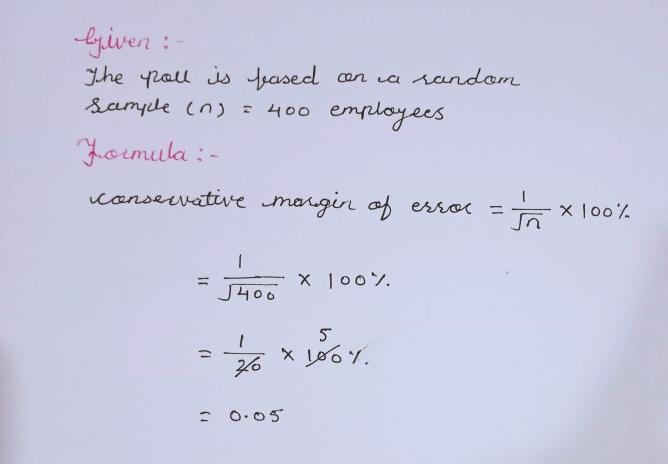 Given :-
The poll is based on a random
Sample (n) = 400 employees
Formula :-
conservative margin of error = 1/√n × 100%
= 1/√400 × 100%.
= 1/20 × 100%. 5
= 0.05